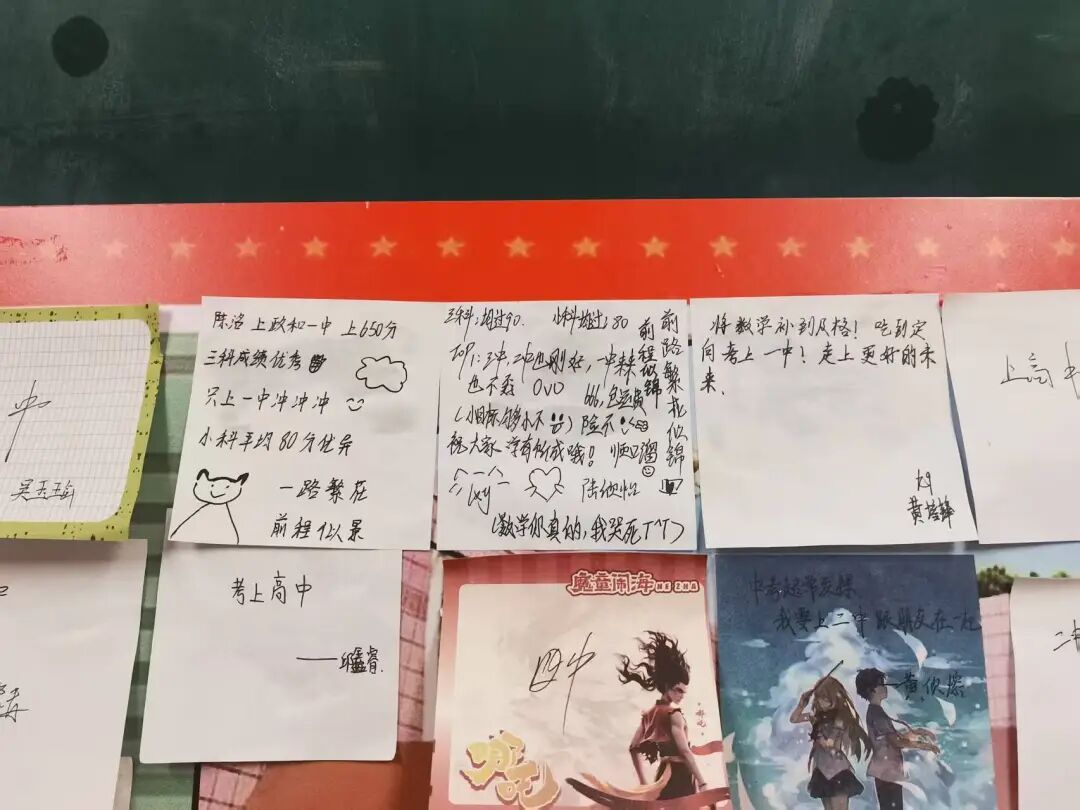 中
陈洺 上政和一中 上650分
三科成绩优秀
只上一中冲冲冲
小科平均80分优异
一路繁花
前程似景
三科:超过90. 小科超过80
TOP1:三中,2中也刚好,一中未来
也不亏 OVO 666,包逆袭
(小目标,够小不) 险不
祝大家 学有所成哦! 顺口溜
lxy
(数学你真的,我哭死T^T)
前程似锦
前路繁花似锦
将数学补到及格! 吃到定
向考上一中! 走上更好的未
来.
k9
上高中
考上高中
魔童闹海
NE ZHA
四中
哪吒
我要上二中 跟朋友在一起
二中